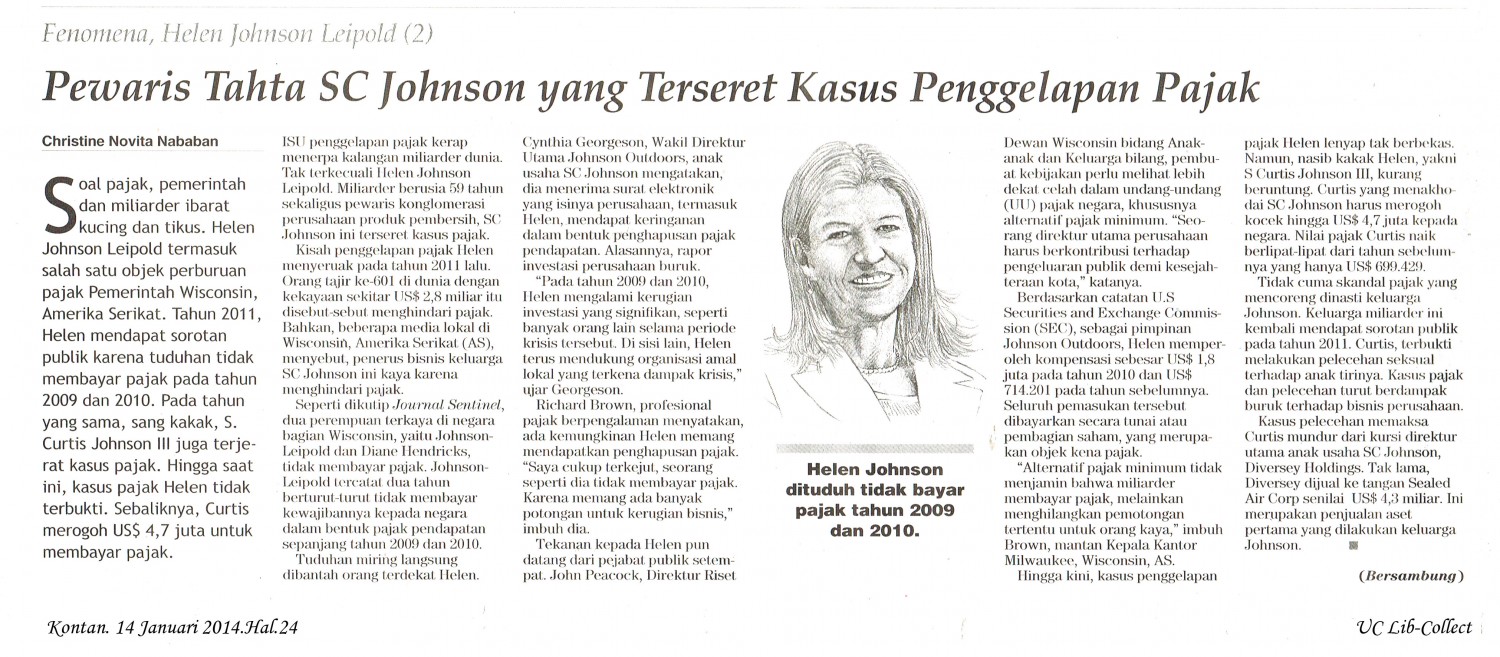 Fenomena, Helen Johnson Leipold (2)
Pewaris Tahta SC Johnson yang Terseret Kasus Penggelapan Pajak
Christine Novita Nababan
Soal pajak, pemerintah
dan miliarder ibarat
kucing dan tikus. Helen
Johnson Leipold termasuk
salah satu objek perburuan
pajak Pemerintah Wisconsin,
Amerika Serikat. Tahun 2011,
Helen mendapat sorotan
publik karena tuduhan tidak
membayar pajak pada tahun
2009 dan 2010. Pada tahun
yang sama, sang kakak, S.
Curtis Johnson III juga terje-
rat kasus pajak. Hingga saat
ini, kasus pajak Helen tidak
terbukti. Sebaliknya, Curtis
merogoh US$ 4,7 juta untuk
membayar pajak.
ISU penggelapan pajak kerap
menerpa kalangan miliarder dunia.
Tak terkecuali Helen Johnson
Leipold. Miliarder berusia 59 tahun
sekaligus pewaris konglomerasi
perusahaan produk pembersih, SC
Johnson ini terseret kasus pajak.
Kisah penggelapan pajak Helen
menyeruak pada tahun 2011 lalu.
Orang tajir ke-601 di dunia dengan
kekayaan sekitar US$ 2,8 miliar itu
disebut-sebut menghindari pajak.
Bahkan, beberapa media lokal di
Wisconsin, Amerika Serikat (AS),
menyebut, penerus bisnis keluarga
SC Johnson ini kaya karena
menghindari pajak.
Seperti dikutip Journal Sentinel,
dua perempuan terkaya di negara
bagian Wisconsin, yaitu Johnson-
Leipold dan Diane Hendricks,
tidak membayar pajak. Johnson-
Leipold tercatat dua tahun
berturut-turut tidak membayar
kewajibannya kepada negara
dalam bentuk pajak pendapatan
sepanjang tahun 2009 dan 2010.
Tuduhan miring langsung
dibantah orang terdekat Helen.
Cynthia Georgeson, Wakil Direktur
Utama Johnson Outdoors, anak
usaha SC Johnson mengatakan,
dia menerima surat elektronik
yang isinya perusahaan, termasuk
Helen, mendapat keringanan
dalam bentuk penghapusan pajak
pendapatan. Alasannya, rapor
investasi perusahaan buruk.
"Pada tahun 2009 dan 2010,
Helen mengalami kerugian
investasi yang signifikan, seperti
banyak orang lain selama periode
krisis tersebut. Di sisi lain, Helen
terus mendukung organisasi amal
lokal yang terkena dampak krisis,"
ujar Georgeson.
Richard Brown, profesional
pajak berpengalaman menyatakan,
ada kemungkinan Helen memang
mendapatkan penghapusan pajak.
"Saya cukup terkejut, seorang
seperti dia tidak membayar pajak.
Karena memang ada banyak
potongan untuk kerugian bisnis,"
imbuh dia.
Tekanan kepada Helen pun
datang dari pejabat publik setem-
pat. John Peacock, Direktur Riset
Helen Johnson
dituduh tidak bayar
pajak tahun 2009
dan 2010.
Dewan Wisconsin bidang Anak-
anak dan Keluarga bilang, pembu-
at kebijakan perlu melihat lebih
dekat celah dalam undang-undang
(UU) pajak negara, khususnya
alternatif pajak minimum. "Seo-
rang direktur utama perusahaan
harus berkontribusi terhadap
pengeluaran publik demi kesejah-
teraan kota," katanya.
Berdasarkan catatan U.S
Securities and Exchange Commis-
sion (SEC), sebagai pimpinan
Johnson Outdoors, Helen memper-
oleh kompensasi sebesar US$ 1,8
juta pada tahun 2010 dan US$
714.201 pada tahun sebelumnya.
Seluruh pemasukan tersebut
dibayarkan secara tunai atau
pembagian saham, yang merupa-
kan objek kena pajak.
"Alternatif pajak minimum tidak
menjamin bahwa miliarder
membayar pajak, melainkan
menghilangkan pemotongan
tertentu untuk orang kaya," imbuh
Brown, mantan Kepala Kantor
Milwaukee, Wisconsin, AS.
Hingga kini, kasus penggelapan
pajak Helen lenyap tak berbekas.
Namun, nasib kakak Helen, yakni
S Curtis Johnson III, kurang
beruntung. Curtis yang menakho-
dai SC Johnson harus merogoh
kocek hingga US$ 4,7 juta kepada
negara. Nilai pajak Curtis naik
berlipat-lipat dari tahun sebelum-
nya yang hanya US$ 699.429.
Tidak cuma skandal pajak yang
mencoreng dinasti keluarga
Johnson. Keluarga miliarder ini
kembali mendapat sorotan publik
pada tahun 2011. Curtis, terbukti
melakukan pelecehan seksual
terhadap anak tirinya. Kasus pajak
dan pelecehan turut berdampak
buruk terhadap bisnis perusahaan.
Kasus pelecehan memaksa
Curtis mundur dari kursi direktur
utama anak usaha SC Johnson,
Diversey Holdings. Tak lama,
Diversey dijual ke tangan Sealed
Air Corp senilai US$ 4,3 miliar. Ini
merupakan penjualan aset
pertama yang dilakukan keluarga
Johnson.
(Bersambung)
Kontan. 14 Januari 2014.Hal.24
UC Lib-Collect